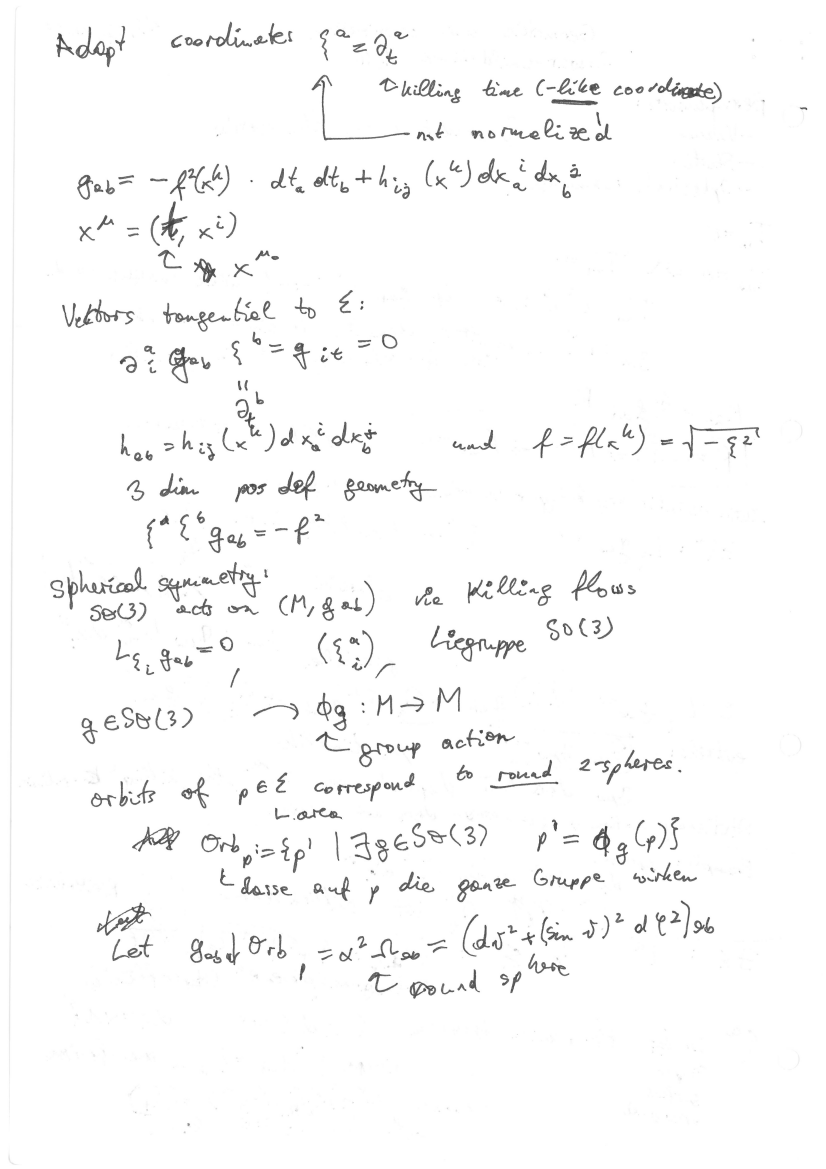 Adapt coordinates ξ^a = ∂_t^a
↑ killing time (-like coordinate)
not normalized
g_ab = -f²(x^k) · dt_a dt_b + h_ij (x^k) dx_a^i dx_b^j
x^μ = (t, x^i)
↑ x^μ0
Vektors tangential to Σ:
∂_i^a g_ab ξ^b = g_it = 0
=
∂_t^b
h_ab = h_ij (x^k) dx_a^i dx_b^j und f = f(x^k) = √(-ξ²)
3 dim pos def geometry
ξ^a ξ^b g_ab = -f²
Spherical symmetry:
SO(3) acts on (M, g_ab) via Killing flows
L_ξi g_ab = 0 , (ξ_i^a) Liegruppe SO(3)
g ∈ SO(3) → ϕ_g : M → M
↑ group action
orbits of p ∈ Σ correspond to round 2-spheres.
area
Orb_p := {p' | ∃ g ∈ SO(3) p' = ϕ_g (p)}
↑ lasse auf p die ganze Gruppe wirken
Let g_ab| Orb_p = α² Ω_ab = (dϑ² + (sin ϑ)² dφ²)_ab
↑ round sphere